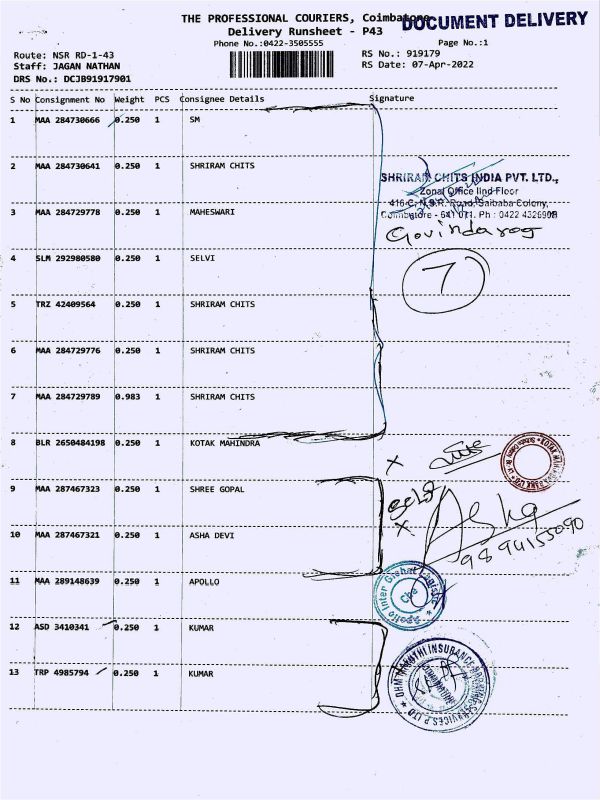 THE PROFESSIONAL COURIERS, Coimbatore
DOCUMENT DELIVERY
Delivery Runsheet - P43
Phone No.:0422-3505555
Page No.:1
Route: NSR RD-1-43
RS No.: 919179
Staff: JAGAN NATHAN
RS Date: 07-Apr-2022
DRS No.: DCJB91917901
S No Consignment No Weight PCS Consignee Details Signature
1 MAA 284730666 0.250 1 SM
2 MAA 284730641 0.250 1 SHRIRAM CHITS
SHRIRAM CHITS INDIA PVT. LTD.,
Zonal Office IInd Floor
416-C, N.S.R. Road, Saibaba Colony,
3 MAA 284729778 0.250 1 MAHESWARI
Coimbatore - 641 011. Ph : 0422 4326908
Govindaraj
4 SLM 292980580 0.250 1 SELVI
7
5 TRZ 42409564 0.250 1 SHRIRAM CHITS
6 MAA 284729776 0.250 1 SHRIRAM CHITS
7 MAA 284729789 0.983 1 SHRIRAM CHITS
8 BLR 2650484198 0.250 1 KOTAK MAHINDRA
X
9 MAA 287467323 0.250 1 SHREE GOPAL
X
Asha
9894155090
10 MAA 287467321 0.250 1 ASHA DEVI
11 MAA 289148639 1 APOLLO
Apollo Inter Global Logistics
Cbe
12 ASD 3410341 0.250 1 KUMAR
13 TRP 4985794 0.250 1 KUMAR
OHM MARUTHI INSURANCE BROKING SERVICES P LTD